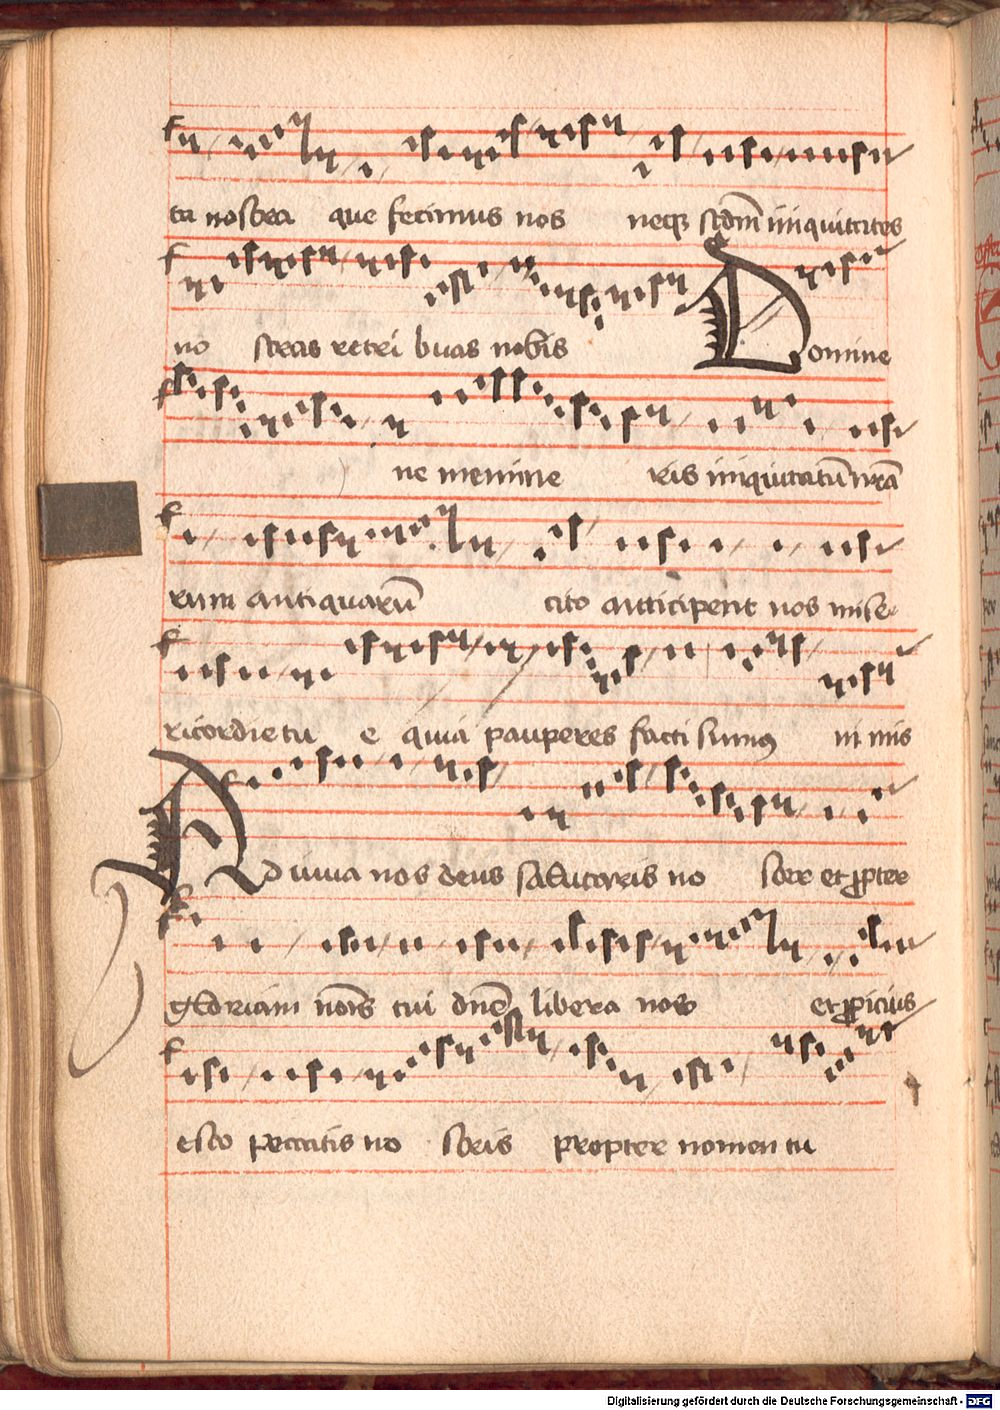 ta nostra que fecimus nos neqꝫ scdm̄ iniquitates
no stras retri buas nobis Domine
ne memine ris iniquitatū nr̄a
rum antiquarū cito anticipent nos mise
ricordie tu e quia pauperes facti sumꝰ ni mis
Adiuua nos deus salutaris no ster et ꝓpter
gloriam nōis tui dn̄e libera nos et ꝓpicius
esto peccatis no stris propter nomen tu
Digitalisierung gefördert durch die Deutsche Forschungsgemeinschaft - DFG